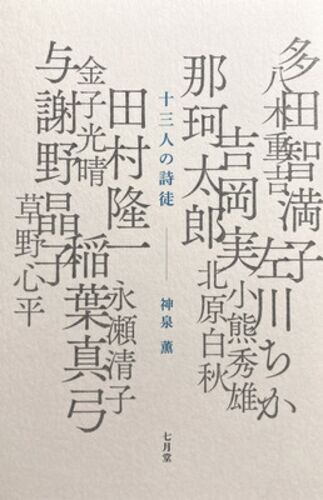 多田智満子
八木重吉
左川ちか
吉岡実
小熊秀雄
那珂太郎
北原白秋
十三人の詩徒
神泉薫
七月堂
田村隆一
永瀬清子
金子光晴
稲葉真弓
与謝野晶子
草野心平